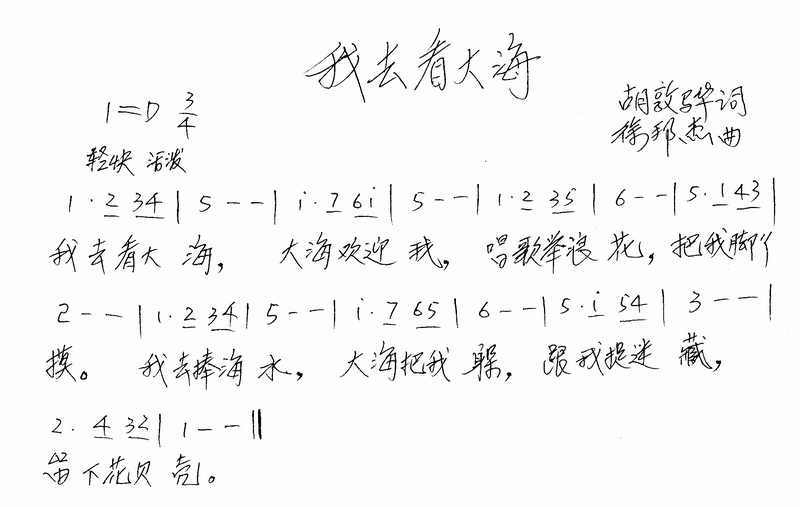 我去看大海
1=D 3/4
胡敦骅词
徐邦杰曲
轻快 活泼
1·2 34 | 5 - - | i·7 6i | 5 - - | 1·2 35 | 6 - - | 5·1 43 |
我去看大 海， 大海欢迎 我。 唱歌举浪 花，把我脚丫
2 - - | 1·2 34 | 5 - - | i·7 65 | 6 - - | 5·i 54 | 3 - - |
摸。 我去捧海 水， 大海把我 躲， 跟我捉迷 藏，
2· 4 32 | 1 - - ‖
留下花贝 壳。